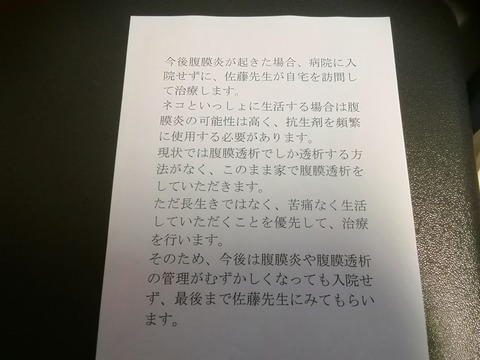 今後腹膜炎が起きた場合、病院に入
院せずに、佐藤先生が自宅を訪問し
て治療します。
ネコといっしょに生活する場合は腹
膜炎の可能性は高く、抗生剤を頻繁
に使用する必要があります。
現状では腹膜透析でしか透析する方
法がなく、このまま家で腹膜透析を
していただきます。
ただ長生きではなく、苦痛なく生活
していただくことを優先して、治療
を行います。
そのため、今後は腹膜炎や腹膜透析
の管理がむずかしくなっても入院せ
ず、最後まで佐藤先生にみてもらい
ます。